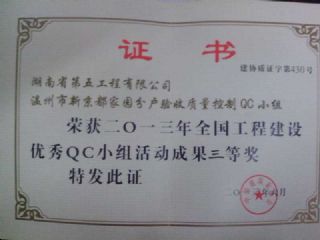 证书
建协质证字第430号
湖南省第五工程有限公司
温州市新京都家园分户验收质量控制QC小组
荣获二〇一三年全国工程建设
优秀QC小组活动成果三等奖
特发此证